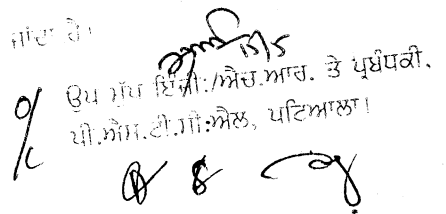 ਜਾਂਦਾ ਹੈ।
15/5
O/C ਉਪ ਮੁੱਖ ਇੰਜੀ:/ਐਚ.ਆਰ. ਤੇ ਪ੍ਰਬੰਧਕੀ.
ਪੀ.ਐਸ.ਟੀ.ਸੀ.ਐਲ, ਪਟਿਆਲਾ।